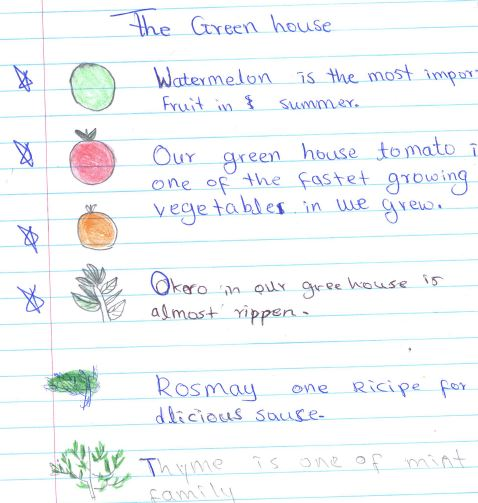 The Green house
Watermelon is the most impor
Fruit in & summer.
Our green house tomato i
one of the fastet growing
vegetables in we grew.
Okero in our greehouse is
almost rippen.
Rosmay one Ricipe for
dlicious sause.
Thyme is one of mint
family